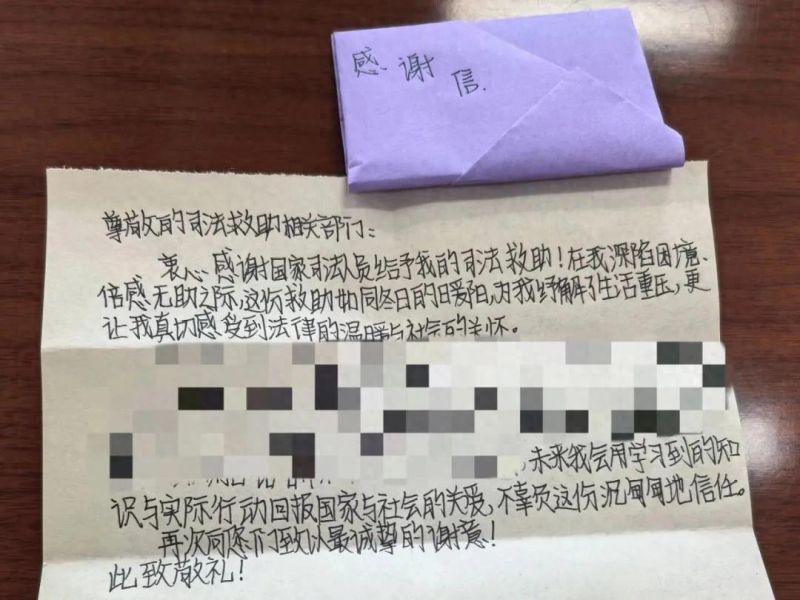 感谢
信.
尊敬的司法救助相关部门:
衷心感谢国家司法人员给予我的司法救助!在我深陷困境、
倍感无助之际,这份救助如同冬日的暖阳,为我纾解了生活重压,更
让我真切感受到法律的温暖与社会的关怀。
,未来我会用学习到的知
识与实际行动回报国家与社会的关爱,不辜负这份沉甸甸地信任。
再次向您们致以最诚尊的谢意!
此致敬礼!